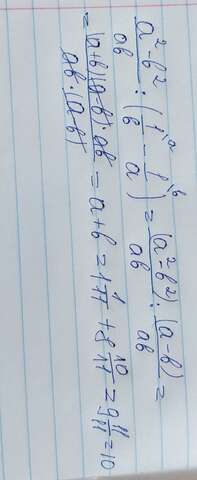 a²-b²/ab : (1/b \a - 1/a \b) = (a²-b²)/ab : (a-b)/ab =
= (a+b)(a-b)·ab/ab·(a-b) = a+b = 1 1/11 + 8 10/11 = 9 11/11 = 10